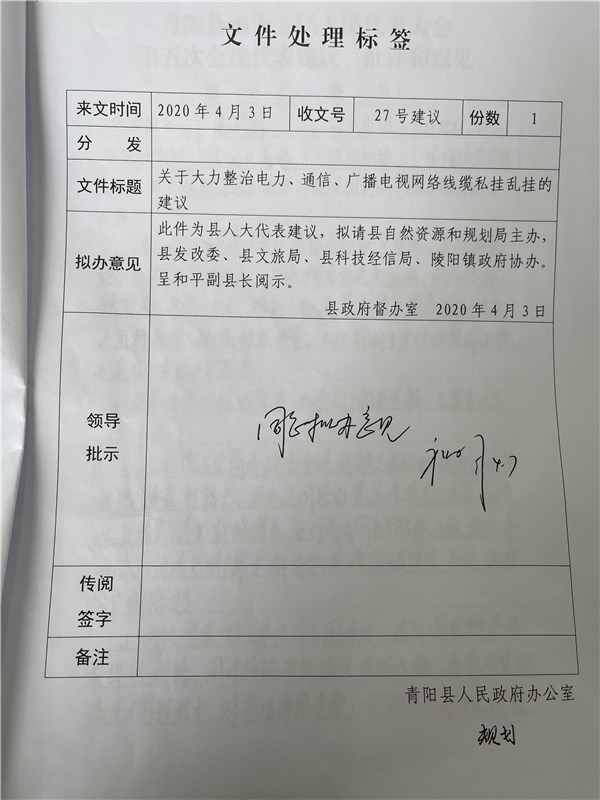 文件处理标签
来文时间 2020年4月3日 收文号 27号建议 份数 1
分 发
文件标题 关于大力整治电力、通信、广播电视网络线缆私挂乱挂的
建议
拟办意见 此件为县人大代表建议，拟请县自然资源和规划局主办，
县发改委、县文旅局、县科技经信局、陵阳镇政府协办。
呈和平副县长阅示。
县政府督办室 2020年4月3日
领导
批示
同意拟办意见
4.7
传阅
签字
备注
青阳县人民政府办公室
规划